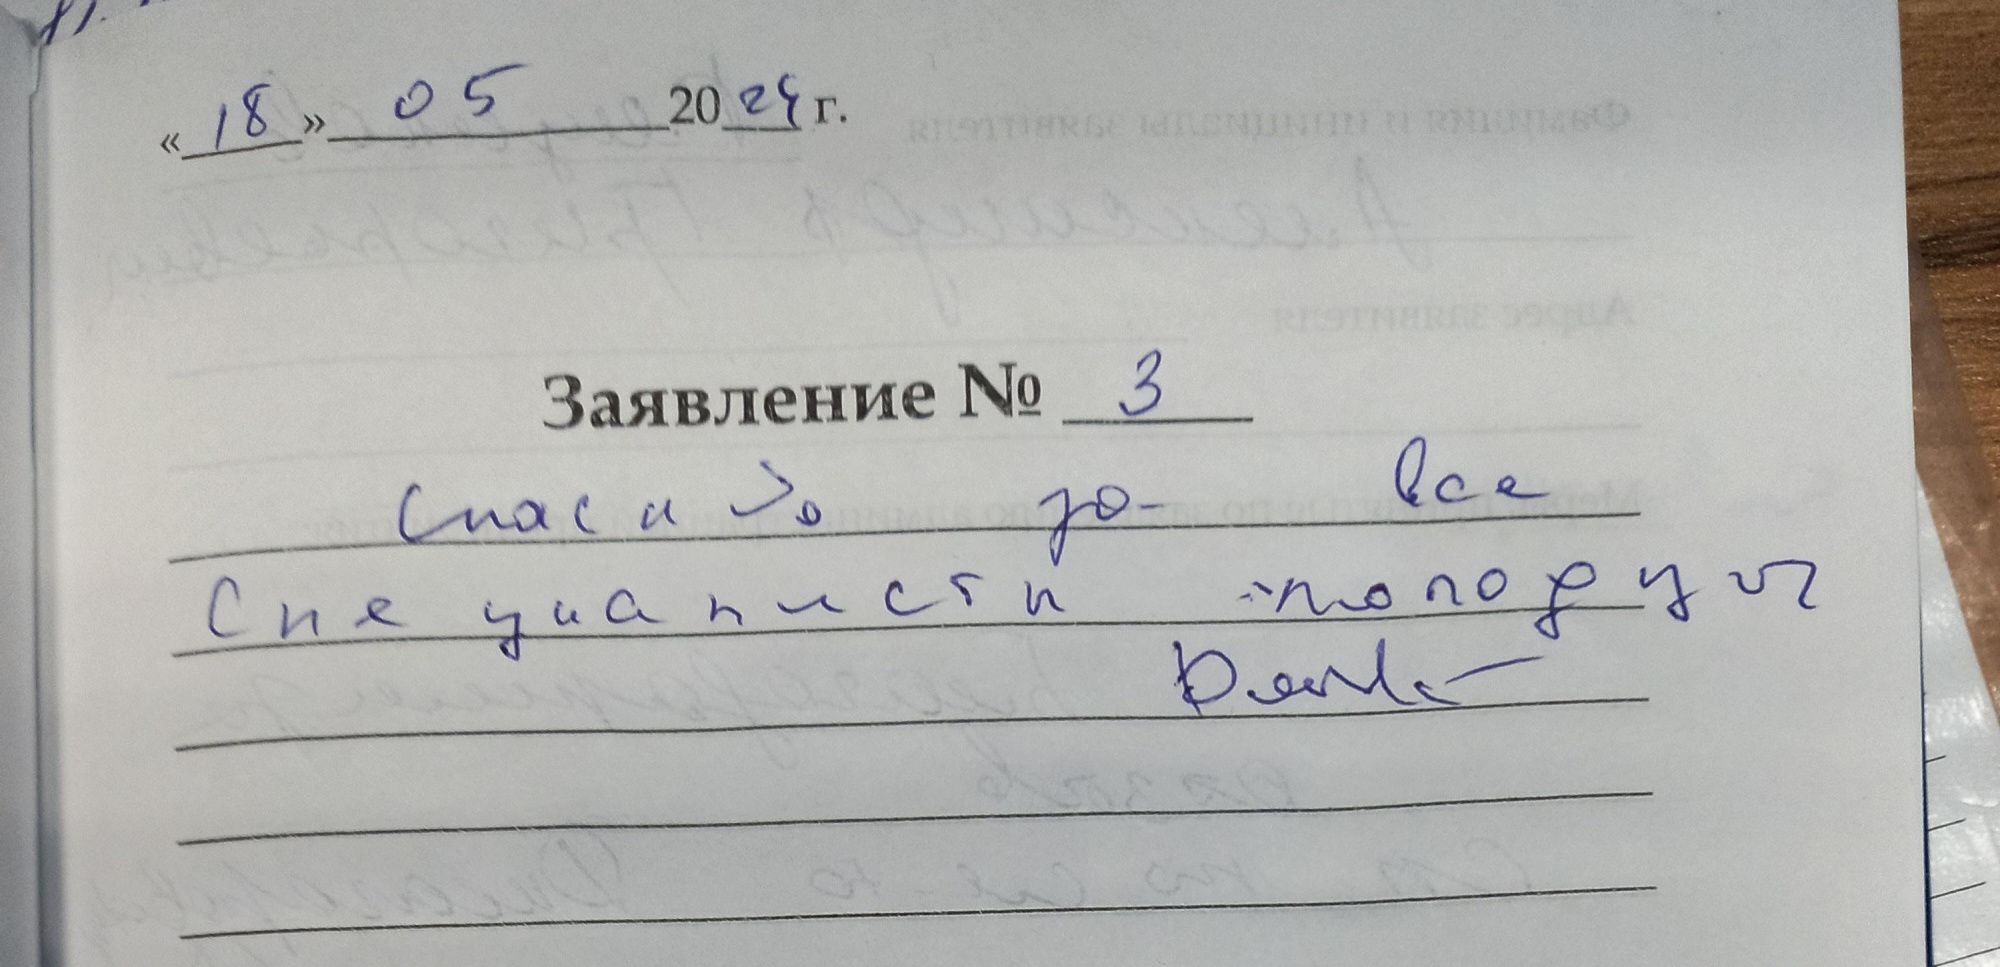 «18» 05 2024 г.
Заявление № 3
Спасибо за все
Специалисти молодци